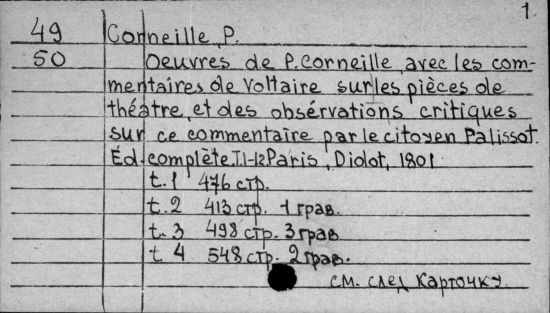 1.
49 Corneille, P.
50 Oeuvres de P. Corneille, avec les com-
mentaires de Voltaire sur les pièces de
théatre, et des obsérvations critiques
sur ce commentaire par le citoyen Palissot.
Éd. complète T.1-12 Paris, Didot, 1801
t. 1 476 стр.
t. 2 413 стр. 1 грав.
t. 3 498 стр. 3 грав
t. 4 548 стр. 2 грав.
см. след карточку.